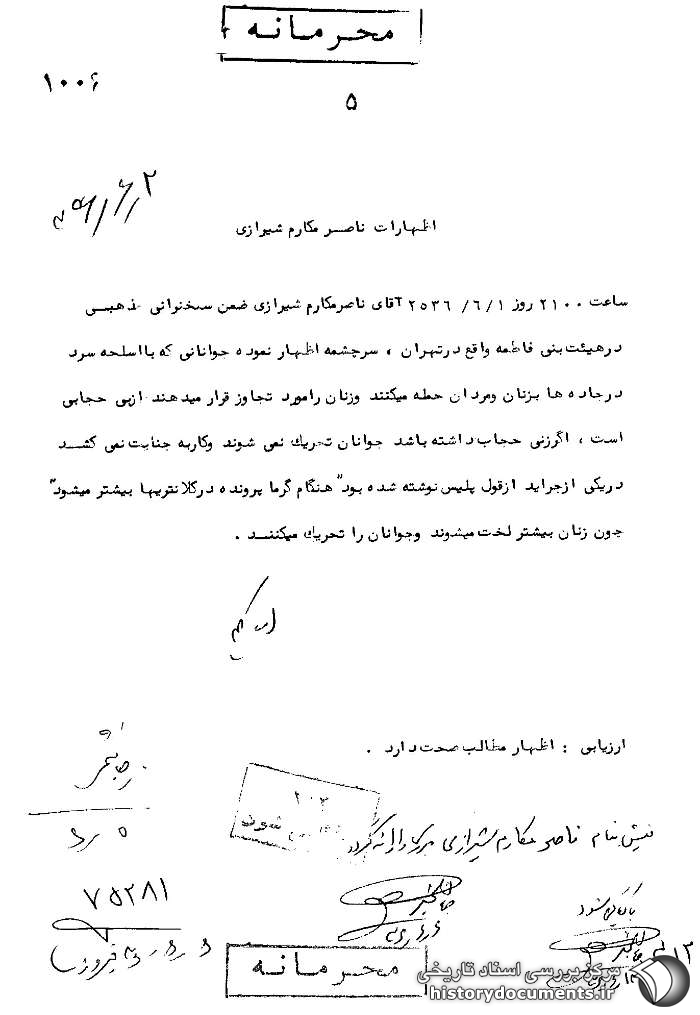 محرمانه
۱۰۰۶
۵
اظهارات ناصر مکارم شیرازی
ساعت ۲۱۰۰ روز ۲۵۳۶/۶/۱ آقای ناصرمکارم شیرازی ضمن سخنرانی مذهبی
درهیئت بنی فاطمه واقع درتهران ، سرچشمه اظهار نموده جوانانی که با اسلحه سرد
درجاده ها بزنان ومردان حمله میکنند وزنان رامورد تجاوز قرار میدهند ازبی حجابی
است ، اگرزنی حجاب داشته باشد جوانان تحریك نمی شوند وکاربه جنایت نمی کشد
دریکی ازجراید ازقول پلیس نوشته شده بود" هنگام گرما پرونده درکلانتریها بیشتر میشود"
چون زنان بیشتر لخت میشوند وجوانان را تحریك میکنند .
ارزیابی : اظهار مطالب صحت دارد .
فیش بنام ناصر مکارم شیرازی
۷۵۲۸۱
محرمانه
مرکز بررسی اسناد تاریخی
historydocuments.ir